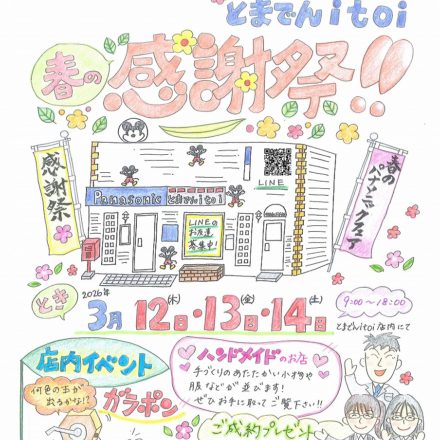 とまでんitoi
春の感謝祭!!
LINE
Panasonic とまでんitoi
LINEの
お友達
募集中!
感謝祭
春のパナソニックフェア
とき
2026年
3月12日(木)・13日(金)・14日(土)
9:00~18:00
とまでんitoi店内にて
店内イベント
何色の玉が
出るかな!?
ガラポン
ハンドメイドのお店
手づくりのあたたかい小物や
服などが並びます!
ぜひお手に取ってご覧下さい!!
ご成約プレゼント